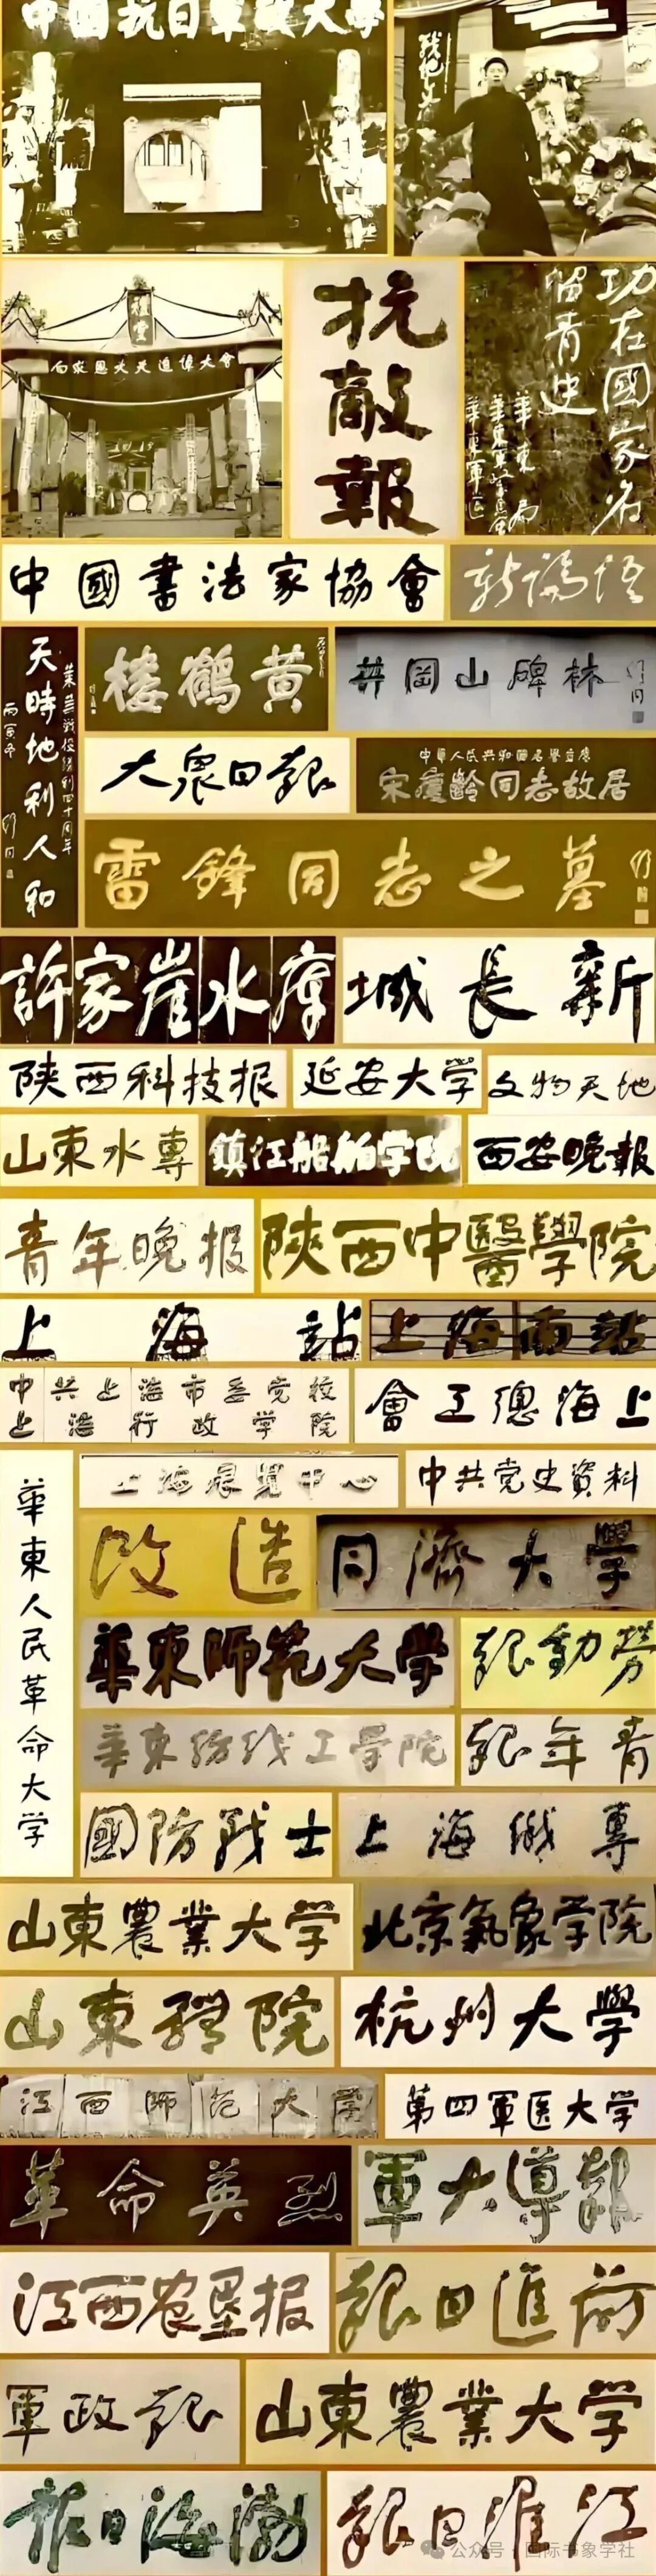 中國抗日軍政大学
向死難烈士追悼大會
抗敵報
功在國家名
留青史
華東局
華東軍區
中國書法家協會
黄鶴樓
井岡山碑林
舒同
天時地利人和
萊蕪戰役勝利四十周年
丙寅冬
舒同
大衆日報
中華人民共和國名譽主席
宋慶齡同志故居
雷鋒同志之墓
舒同
許家崖水庫
新長城
陕西科技报
延安大学
文物天地
山東水專
鎮江船舶学院
西安晚報
青年晚报
陝西中醫學院
上海站
上海南站
中共上海市委党校
上海行政学院
上海總工會
上海展覽中心
中共党史資料
華東人民革命大学
改造
同濟大學
華東师范大学
勞動報
華東纺织工学院
青年報
國防戰士
上海機專
山東農業大学
北京氣象学院
山東醫院
杭州大學
江西师范大学
第四軍医大学
革命英烈
軍大導報
江西农墾报
前進日報
軍政報
山東農業大学
渤海日報
江淮日報
公众号·国际书象学社